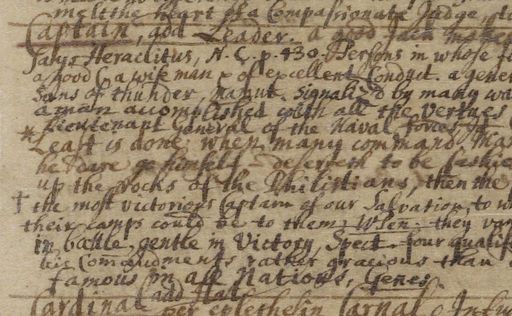 melt the heart of a Compassionate Judge,
Captain, add Leader. a good Jack
Says Heraclitus, N.C. p. 430. Persons in whose
a good & a wise man & of excellent Conduct. a gene
Sons of thunder signaliz'd by many wa
a man accomplished with all the Vertues
* Lieutenant General of the Naval forces
Least is done, when many command,
he dare go himself deserveth to be
up the rocks of the Philistians, then the
† the most victorious Captain of our Salvation, to w
their camps could be to them. Wsen. they va
in battle, gentle in Victory. Spect. four qualifi
lic Comandments rather gracious than
famous in all Nations, Genes.
Cardinal add Hat. per epithesin Carnal